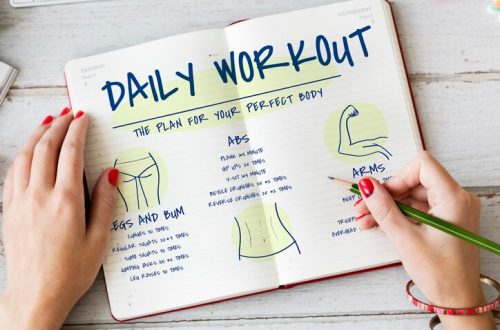 TUESDAY
WEDNESDAY
DAILY WORKOUT
THE PLAN FOR YOUR PERFECT BODY
ABS
PLANK MINUTE
UPS 20 TIMES
V-SIT MINUTE
BICYCLE CRUNCHES 20 TIMES
REVERSE CRUNCHES 20 TIMES
ARMS
BICEP
TRICEPS
OVERHEAD
LEGS AND BUM
LUNGES 10 TIMES
REGULAR SQUATS TIMES
SUMO SQUATS 20 TIMES
JUMPING JACKS TIMES
LEG RAISES 10 TIMES